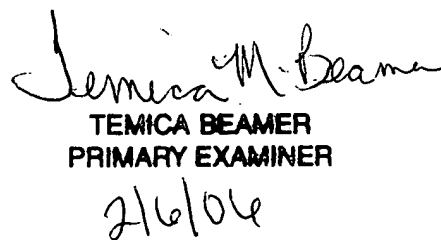 Temica M. Beamer
TEMICA BEAMER
PRIMARY EXAMINER
2/6/06